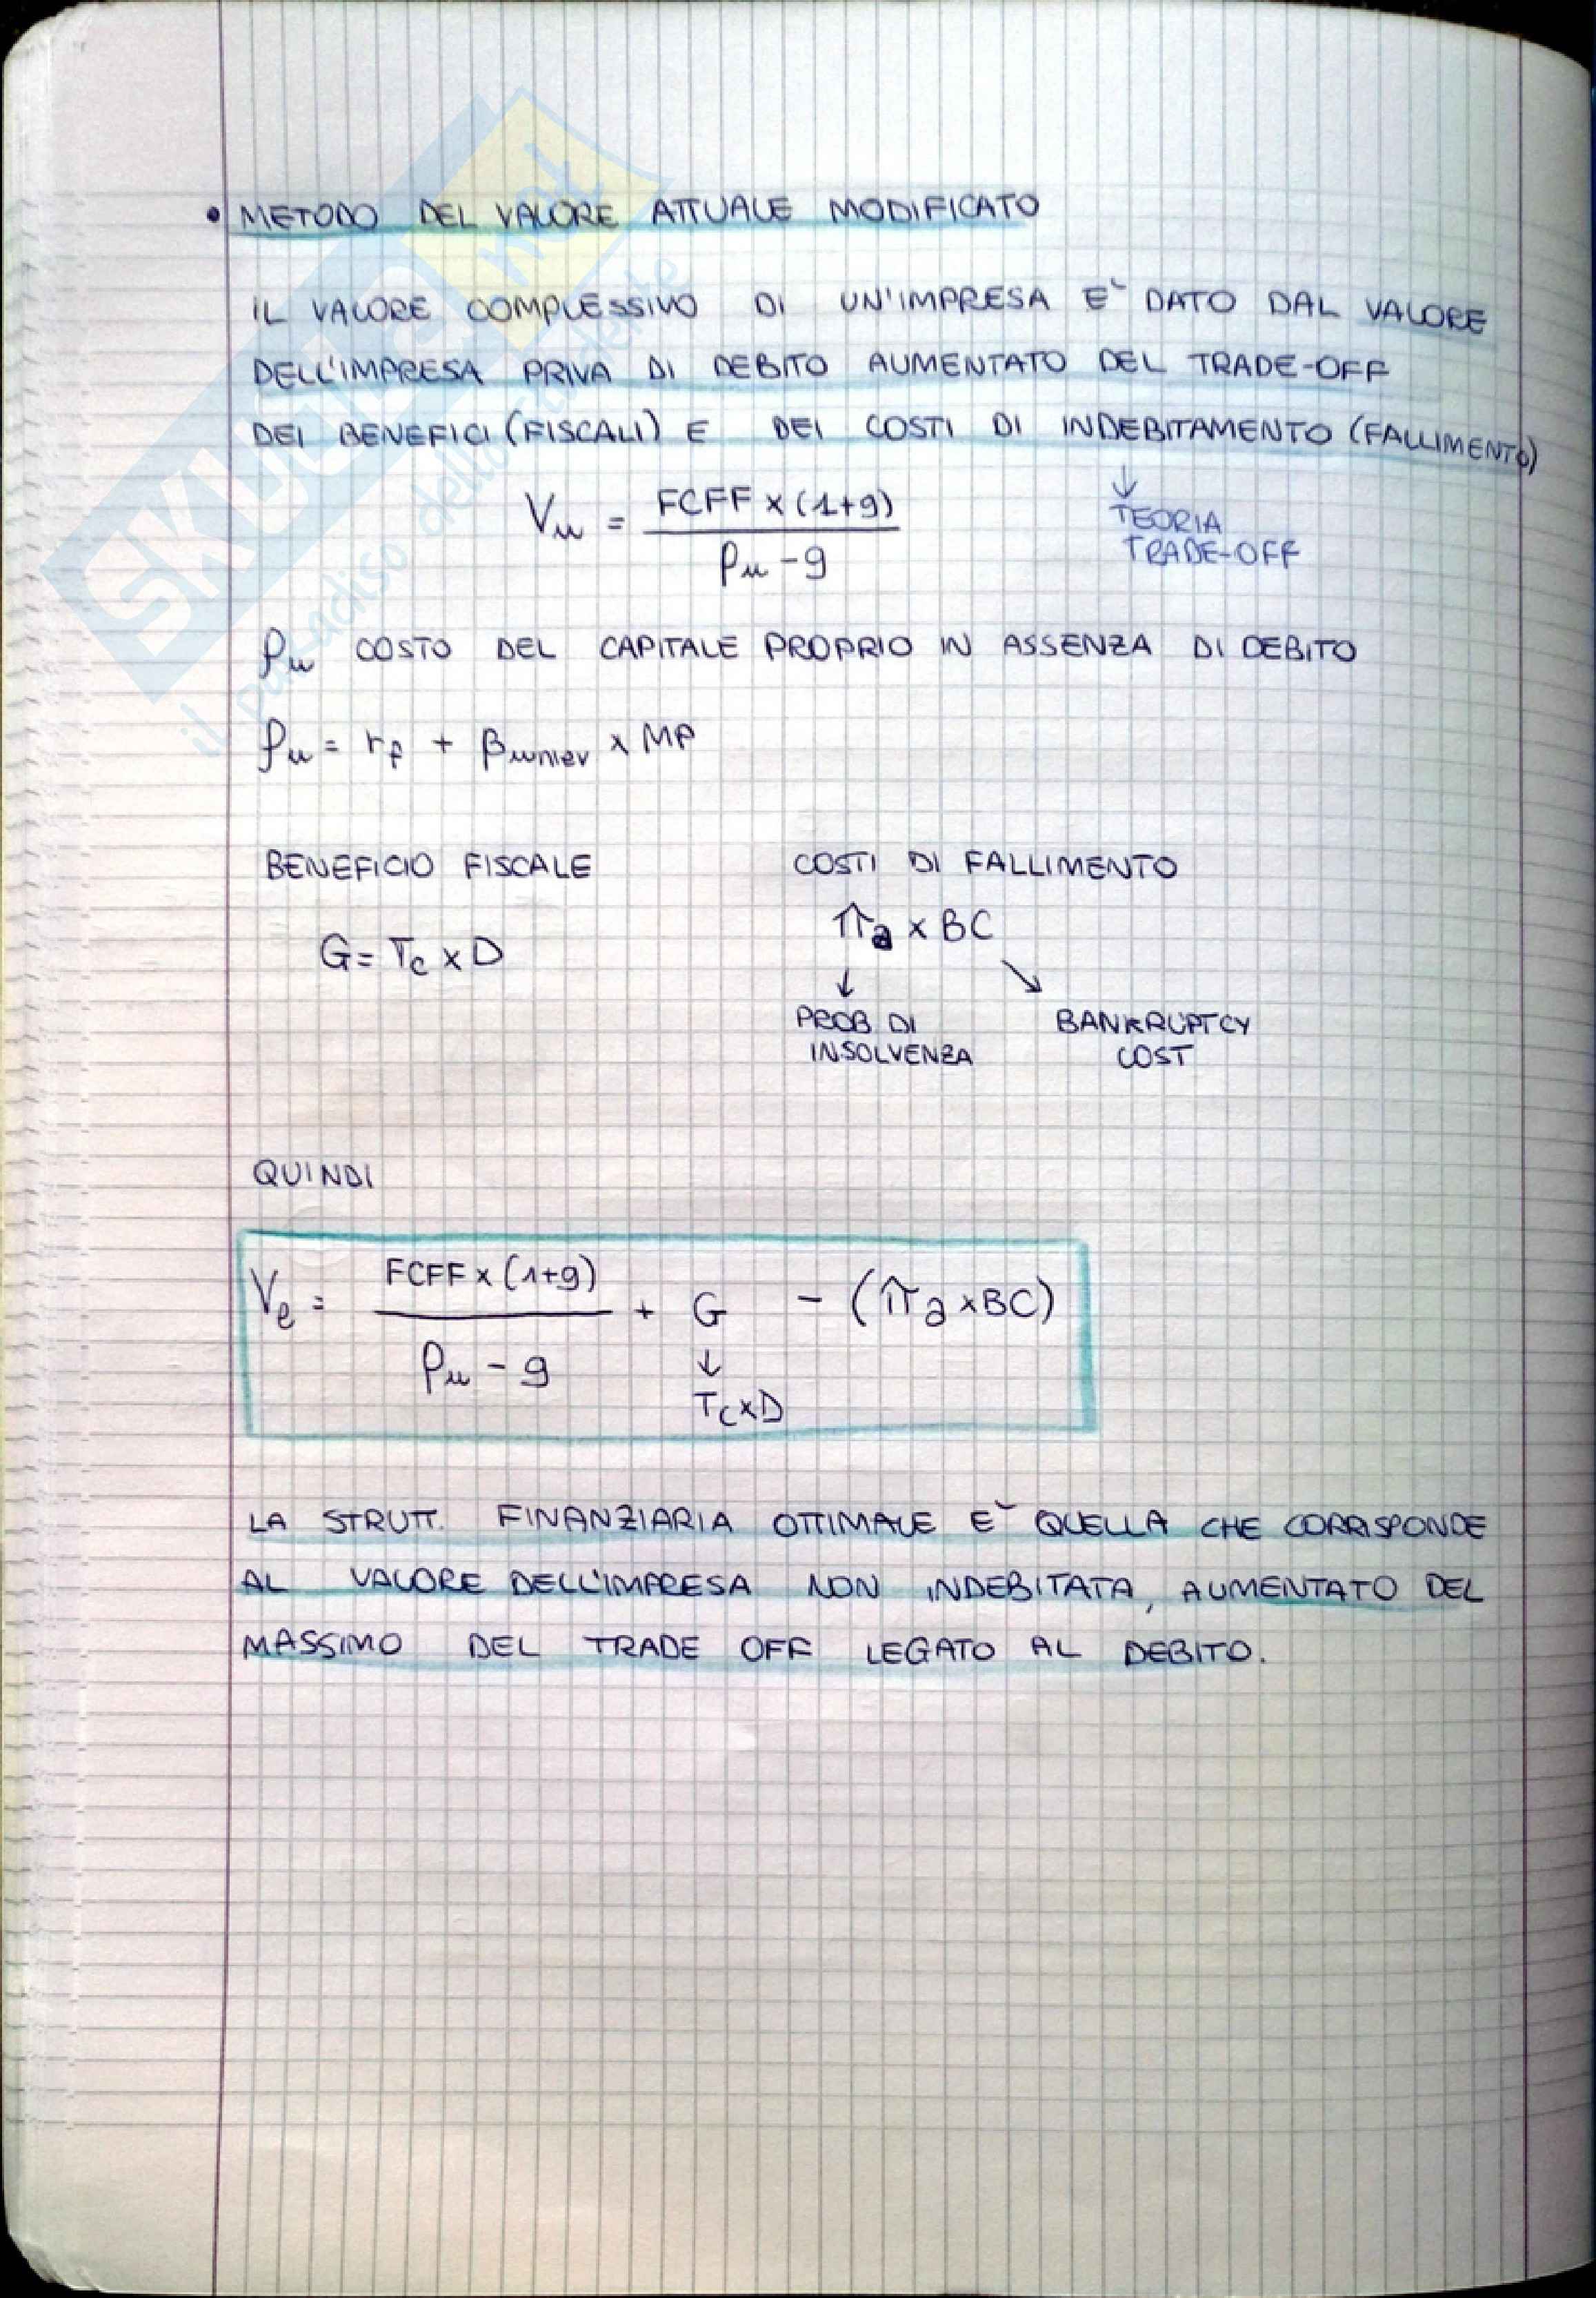 • METODO DEL VALORE ATTUALE MODIFICATO
IL VALORE COMPLESSIVO DI UN'IMPRESA E' DATO DAL VALORE
DELL'IMPRESA PRIVA DI DEBITO AUMENTATO DEL TRADE-OFF
DEI BENEFICI (FISCALI) E DEI COSTI DI INDEBITAMENTO (FALLIMENTO)
↓
TEORIA
TRADE-OFF
Vu = FCFF x (1+g)
ρu - g
ρu COSTO DEL CAPITALE PROPRIO IN ASSENZA DI DEBITO
ρu = rf + βunlev x MP
BENEFICIO FISCALE COSTI DI FALLIMENTO
G = Tc x D πa x BC
↓ ↘
PROB DI BANKRUPTCY
INSOLVENZA COST
QUINDI
Ve = FCFF x (1+g) + G - (πa x BC)
ρu - g ↓
Tc x D
LA STRUTT. FINANZIARIA OTTIMALE E' QUELLA CHE CORRISPONDE
AL VALORE DELL'IMPRESA NON INDEBITATA, AUMENTATO DEL
MASSIMO DEL TRADE OFF LEGATO AL DEBITO.
SKUOLA.net
il paradiso dello studente